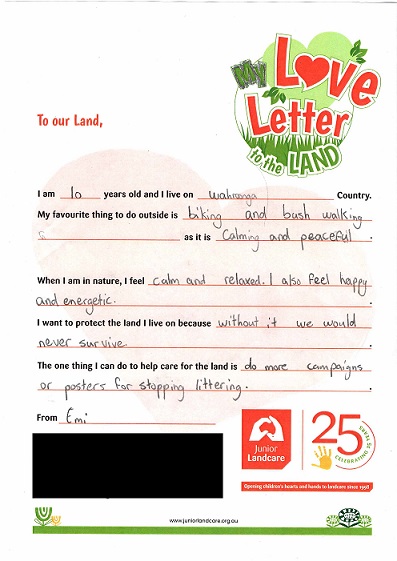 My Love
Letter
to the LAND
To our Land,
I am 10 years old and I live on Wahroonga Country.
My favourite thing to do outside is biking and bush walking
as it is Calming and peaceful.
When I am in nature, I feel calm and relaxed. I also feel happy
and energetic.
I want to protect the land I live on because without it we would
never survive
The one thing I can do to help care for the land is do more campaigns
or posters for stopping littering.
From Emi
Junior
Landcare
25 YEARS
CELEBRATING
Opening children's hearts and hands to landcare since 1998
www.juniorlandcare.org.au